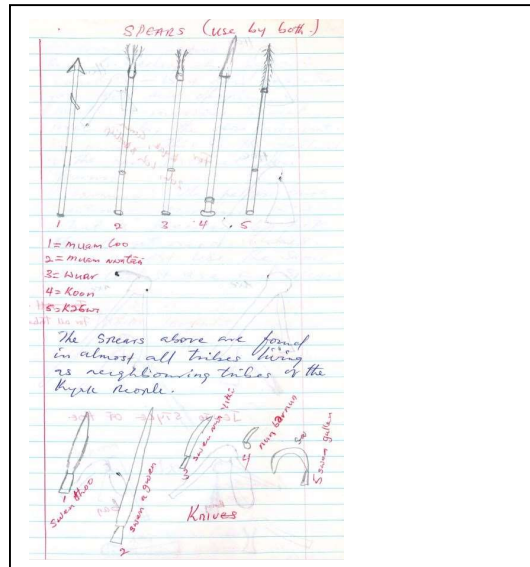 SPEARS (use by both.)
1 2 3 4 5
1 = muam Coo
2 = muam
3 = wuar
4 = Koon
5 =
The spears above are found
in almost all tribes living
as neighbouring tribes of the
people.
1 swen thoo
2 swen a gwen
3 swen
4 nun barnun
5 swen gullen
Knives